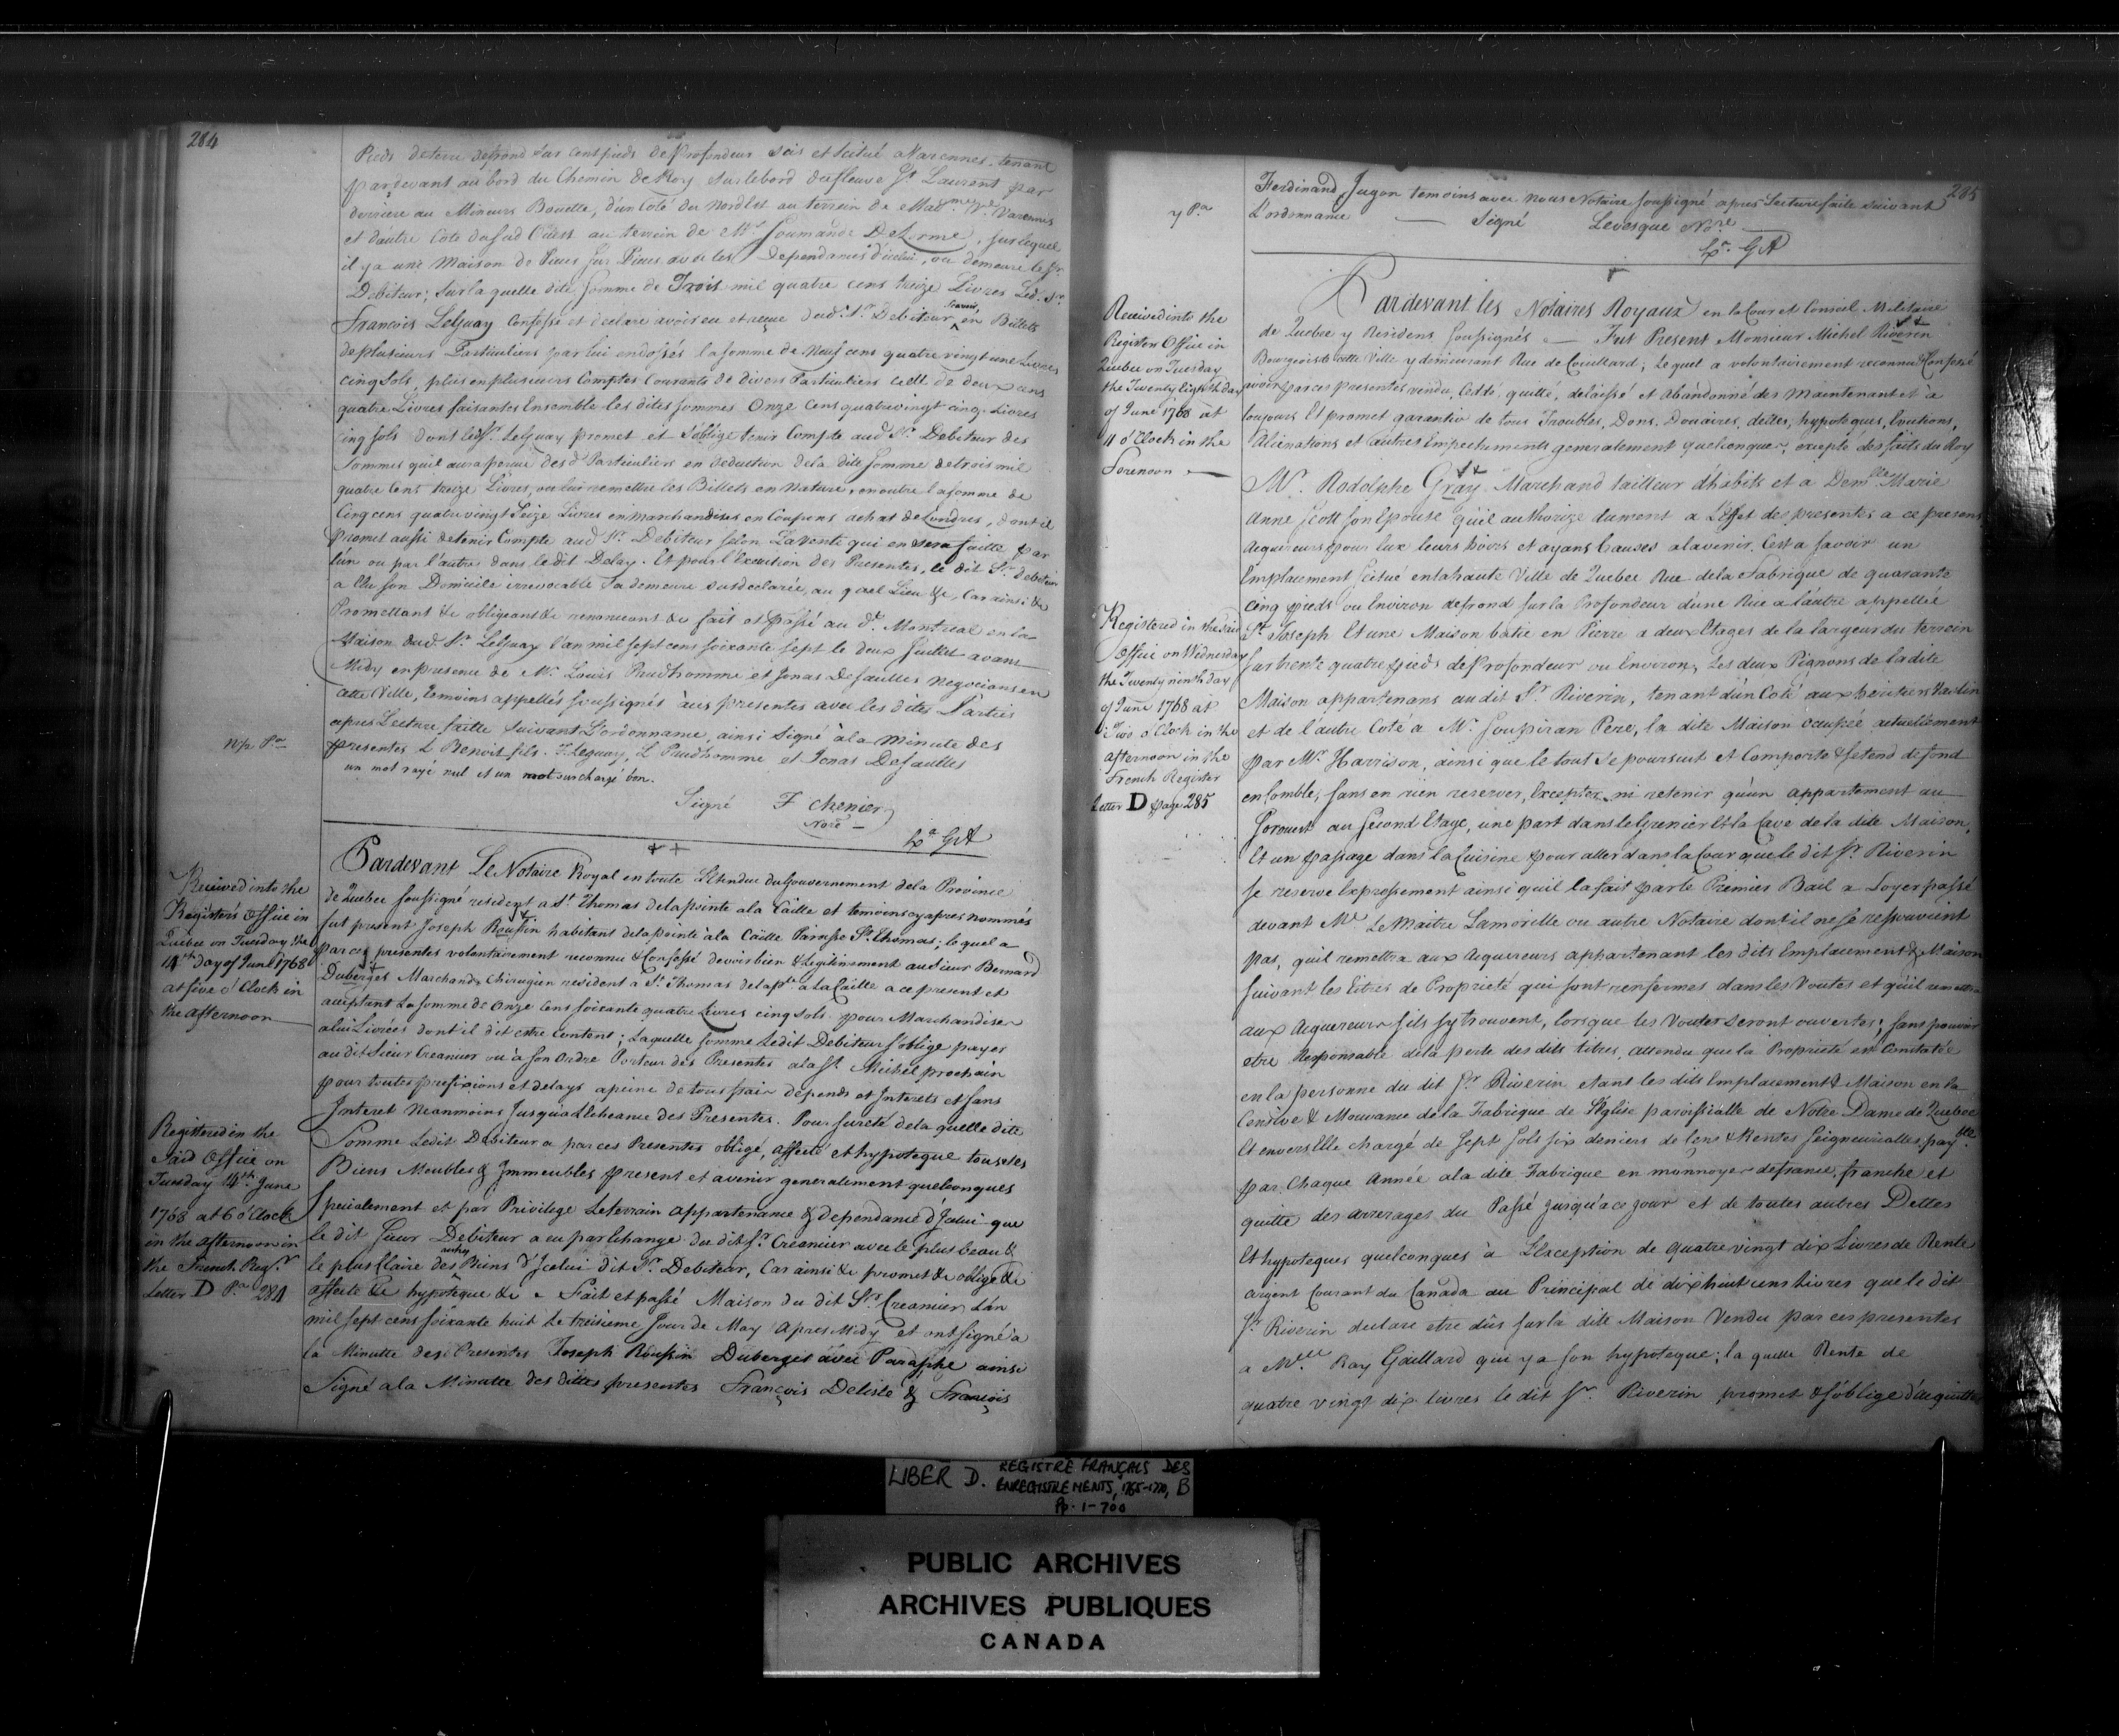 284
Pieds de terre de frond sur cent pieds de Profondeur sis et Scitué a Varennes, tenant
par devant au bord du Chemin de Roy sur le bord du fleuve St. Laurent par
derriere au Mineurs Bouette, d'un Coté du Nord Est au terrein de Madme. Ve. Varennes
et d'autre Coté du Sud Ouest au terrein de Mr. Soumande Delorme, sur lequel
il y a une Maison de Pieces sur Pieces avec les Dependances d'icelui, ou demeure le Sr.
Debiteur; sur la quelle dite somme de Trois mil quatre cens treize Livres Led. Sr.
François LeGuay Confesse et declare avoir eu et reçue dud. Sr. Debiteur, scavoir, en Billets
de plusieurs Particuliers par lui endossés la somme de Neuf cens quatre vingt une Livres
cinq Sols, plus en plusieurs Comptes Courants de divers Particuliers celle de deux cens
quatre Livres faisantes Ensemble les dites sommes Onze Cens quatre vingt cinq Livres
cinq sols dont led. Sr. LeGuay promet et s'oblige tenir Compte aud. Sr. Debiteur des
Sommes qu'il aura perçue des d. Particuliers en deduction de la dite somme de trois mil
quatre Cens treize Livres, ou lui remettre les Billets en Nature, en outre la somme de
Cinq cens quatre vingt Seize Livres en Marchandises en Coupons achat de Londres, dont il
Promet aussi de tenir Compte aud. Sr. Debiteur selon La Vente qui en sera faitte par
l'un ou par l'autre dans le dit Delay. Et pour l'Execution des Presentes, le dit Sr. Debiteur
a Elu son Domicile irrevocable Sa demeure susdeclarée, au quel Lieu &c, Car ainsi &c
Promettant &c obligeant &c renonceant &c fait et passé au dt. Montreal en la
Maison dud. Sr. LeGuay l'an mil sept cens soixante sept le deux Juillet avant
Midy en presence de Mr. Louis Prudhomme et Jonas Desaulles Negocians en
cette Ville, temoins appellés soussignés à ces presentes avec les dites Parties
apres Lecture faitte suivant L'ordonnance, ainsi Signé à la Minute des
presentes L Benoit fils. F. Leguay, L Prudhomme et Jonas Desaulles
un mot rayé nul et un mot surchargé bon.
Signé F Chenier
Nore
Ex. GA
Received into the
Register's Office in
Quebec on Tuesday the
14th day of June 1768
at five o'Clock in
the afternoon
Registered in the
Said Office on
Tuesday 14th June
1768 at 6 o'Clock
in the afternoon in
the French Regr.
Letter D Pa. 284
Pardevant Le Notaire Royal en toute L'Etendue du Gouvernement de la Province
de Quebec soussigné resident a St. Thomas de la pointe a la Caille et temoins cy apres nommés
fut present Joseph Roussin habitant de la pointe à la Caille Paroisse St. Thomas; lequel a
par ces presentes volontairement reconnu & Confessé devoir bien & Legitimement au Sieur Bernard
Duberges Marchand Chirugien resident a St. Thomas de la pte. a la Caille a ce present et
acceptant La somme de Onze Cens soixante quatre Livres cinq Sols pour Marchandises
a lui Livrées dont il dit etre Content; Laquelle somme Ledit Debiteur s'oblige payer
au dit Sieur Creancier ou à son Ordre Porteur des Presentes a la St. Michel prochain
pour toutes prefixions et delays a peine de tous frais depends et Interets et sans
Interet Neanmoins Jusqu'a L'Echeance des Presentes. Pour sureté de la quelle dite
Somme Ledit Debiteur a par ces Presentes obligé, affecté et hypoteque tous ses
Biens Meubles & Immeubles present et avenir generalement quelconques
specialement et par Privilege Le terrain appartenance & dependance d'Icelui que
le dit Sieur Debiteur a eu par Echange du dit Sr. Creancier avec le plus beau &
le plus Claire des autres Biens d'Icelui dit Sr. Debiteur, Car ainsi &c promet &c oblige &c
affecte &c hypoteque &c Fait et passé Maison du dit Sr. Creancier L'an
mil sept cens soixante huit Le treisieme Jour de May Apres Midy et ont signé à
la Minutte des Presentes Joseph Roussin Duberges avec Paraphe ainsi
Signé a la Minutte des dittes presentes François Delisle & François
285
y Pa
Ferdinand Jugon temoins avec nous Notaire soussigné apres Lecture faite suivant
L'ordonnance Signé Levesque Nore
Ex. GA
Received into the
Registers Office in
Quebec on Tuesday
the Twenty Eighth day
of June 1768 at
11 o'Clock in the
Forenoon
Registered in the said
Office on Wednesday
the Twenty ninth day
of June 1768 at
Two o'Clock in the
afternoon in the
French Register
Letter D page 285
Pardevant les Notaires Royaux en la Cour et Conseil Militaire
de Quebec y Residens soussignés Fut Present Monsieur Michel Riverin
Bourgeois de cette Ville y demeurant Rue de Couillard; Lequel a volontairement reconnu & Confessé
avoir par ces presentes vendu, Ceddé, quitté, delaissé et abandonné dés Maintenant et à
toujours Et promet garantir de tous Troubles, Dons, Douaires, dettes, hypoteques, Evictions,
Alienations et autres Empechements generalement quelconques, excepté des faits du Roy
Mr. Rodolphe Gray Marchand tailleur d'habits et a Demlle. Marie
Anne Scott son Epouse qu'il authorize dument a L'effet des presentes a ce presens
Acquereurs pour Eux leurs hoirs et ayans Causes alavenir. C'est a savoir un
Emplacement scitué en la haute Ville de Quebec Rue de la Fabrique de quarante
cinq pieds ou Environ de frond sur la Profondeur d'une Rue a L'autre appellée
St. Joseph Et une Maison batie en Pierre a deux Etages de la largeur du terrein
sur trente quatre pieds de Profondeur ou Environ, Les deux Pignons de la dite
Maison appartenans au dit Sr. Riverin, tenant d'un Coté aux heritiers
et de l'autre Coté a Mr. Soupiran Pere, la dite Maison occupée actuellement
par Mr. Harrison, ainsi que le tout se poursuit et Comporte & s'etend de fond
en Comble, sans en rien reserver, Excepter, ni retenir qu'un appartement au
Sorouest au second Etage, une part dans le Grenier Et la Cave de la dite Maison,
Et un passage dans la Cuisine pour aller dans la Cour que le dit Sr. Riverin
se reserve Expressement ainsi qu'il la fait par le Premier Bail a Loyer passé
devant Me. Le Maitre Lamorille ou autre Notaire dont il ne se ressouvient
pas, qu'il remettra aux Acquereurs appartenant les dits Emplacement & Maison
suivant les titres de Proprieté qui sont renfermés dans les Voutes et qu'il remettra
aux Acquereurs s'ils s'y trouvent, lorsque les Voutes seront ouvertes; sans pouvoir
etre Responsable de la perte des dits titres, attendu que la Proprieté est Constatée
en la personne du dit Sr. Riverin etant les dits Emplacement & Maison en la
Censive & Mouvance de la Fabrique de L'Eglise paroissialle de Notre Dame de Quebec
Et envers Elle chargé de Sept Sols six deniers de Cens & Rentes Seigneurialles payble.
par Chaque Année a la dite Fabrique en monnoye de france, franche et
quitte des arrerages du Passé jusqu'a ce jour et de toutes autres Dettes
Et hypoteques quelconques à L'Exception de quatre vingt dix Livres de Rente
argent Courant du Canada au Principal de dix huit cens Livres que le dit
Sr. Riverin declare etre dûs sur la dite Maison Vendu par ces presentes
a Mlle. Ray Gaillard qui y a son hypoteque; la quelle Rente de
quatre vingt dix livres le dit Sr. Riverin promet & s'oblige d'acquitter
LIBER D. REGISTRE FRANÇAIS DES
ENREGISTREMENTS, 1765-1770, B
Pp. 1-700
PUBLIC ARCHIVES
ARCHIVES PUBLIQUES
CANADA